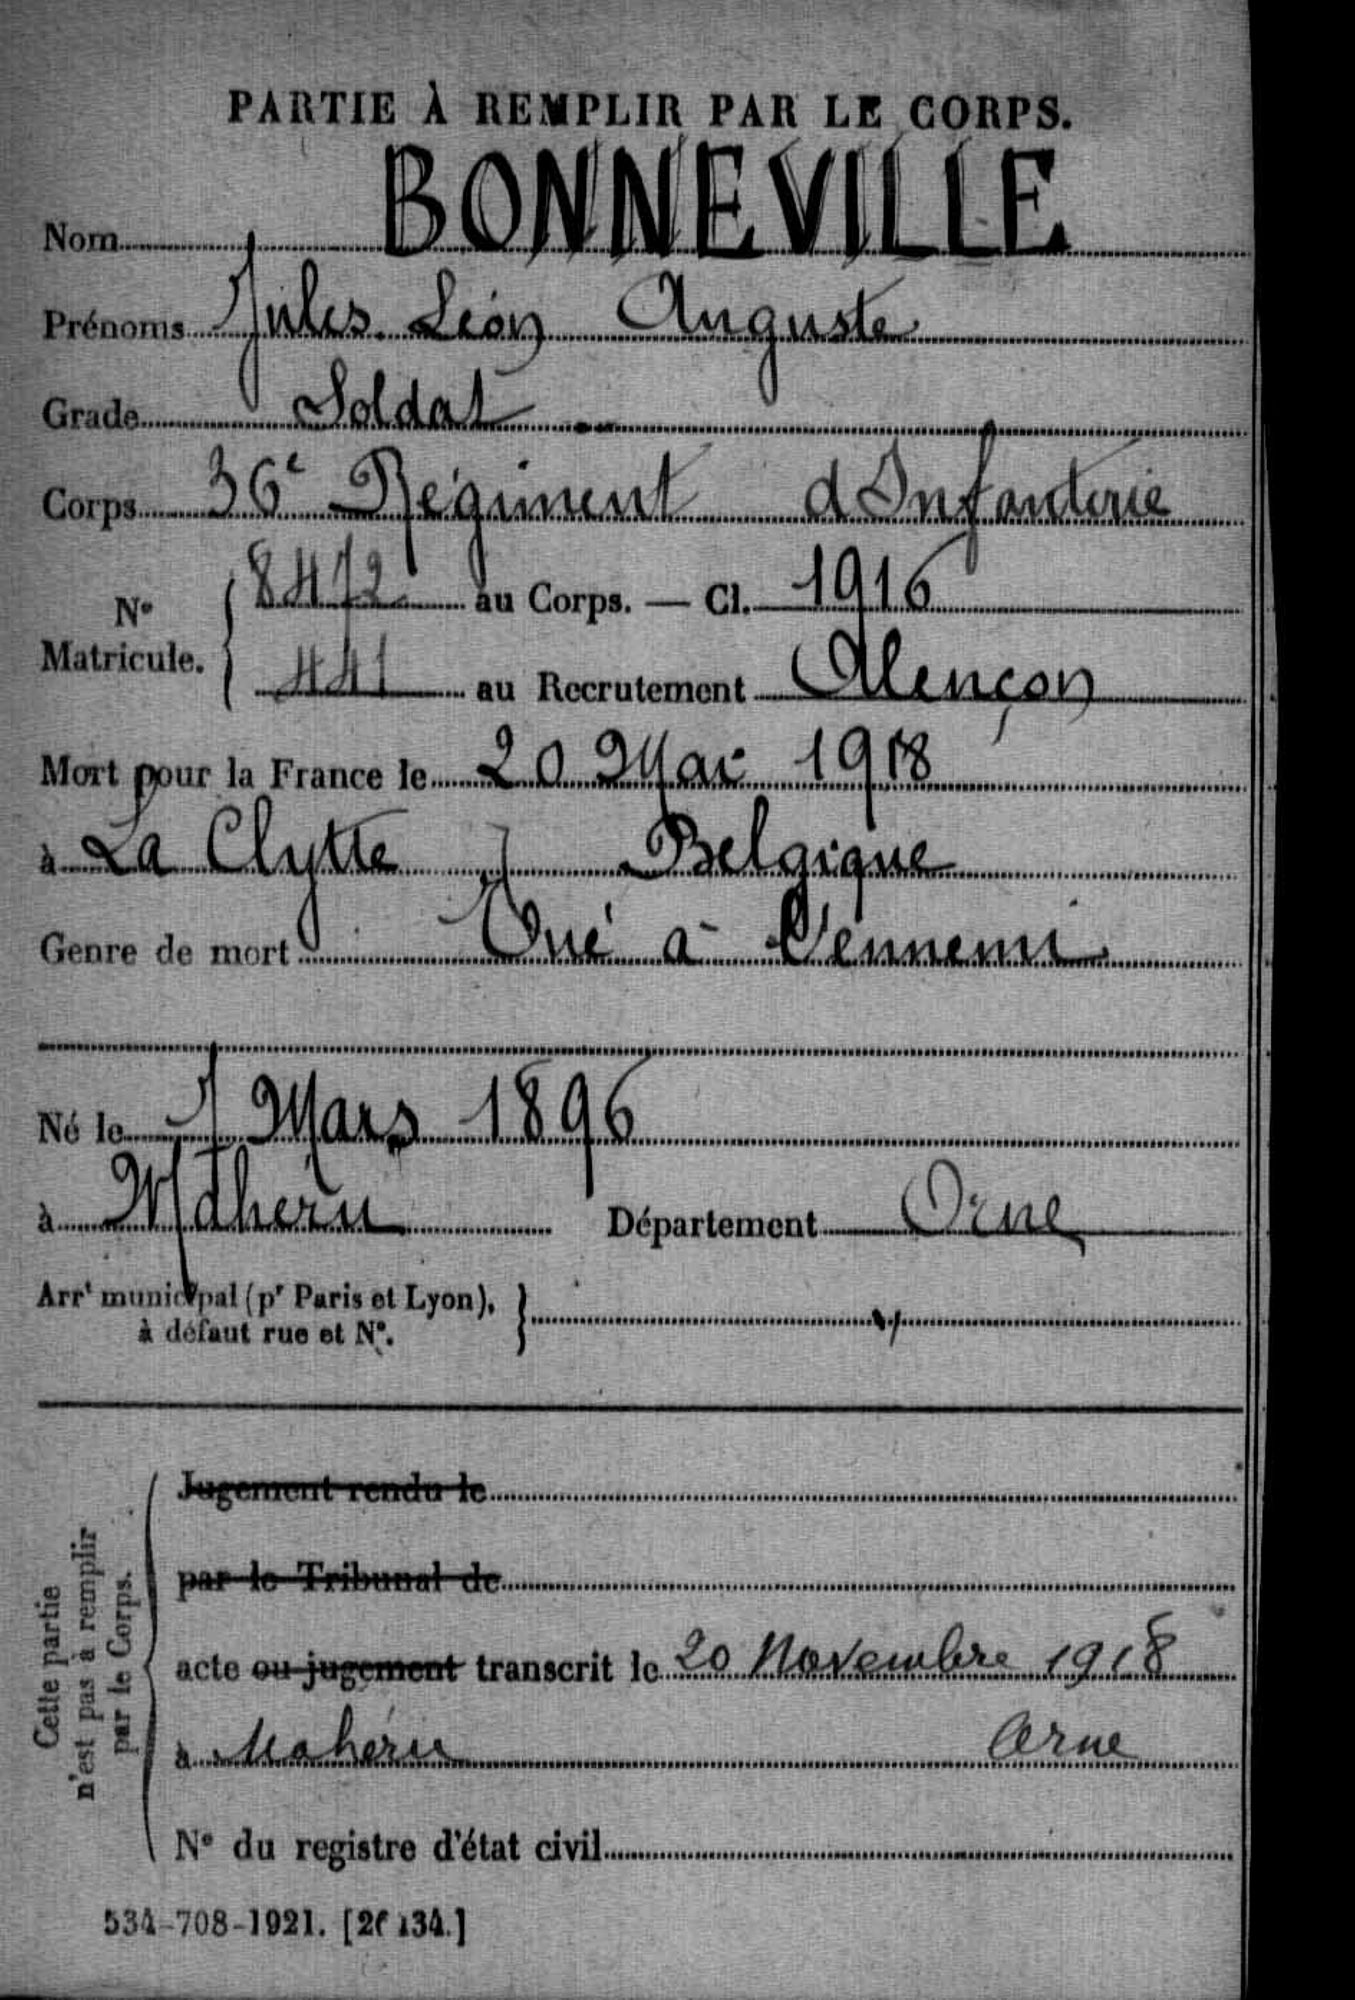 PARTIE À REMPLIR PAR LE CORPS.
Nom BONNEVILLE
Prénoms Jules Léon Auguste
Grade Soldat
Corps 36e Régiment d'Infanterie
N° Matricule. 8472 au Corps. — Cl. 1916
441 au Recrutement Alençon
Mort pour la France le 20 Mai 1918
à La Clytte Belgique
Genre de mort Tué à l'ennemi
Né le 7 Mars 1896
à Mahéru Département Orne
Arrt municipal (pr Paris et Lyon),
à défaut rue et N°.
Cette partie
n'est pas à remplir
par le Corps.
Jugement rendu le
par le Tribunal de
acte ou jugement transcrit le 20 Novembre 1918
à Mahéru Orne
N° du registre d'état civil
534-708-1921.